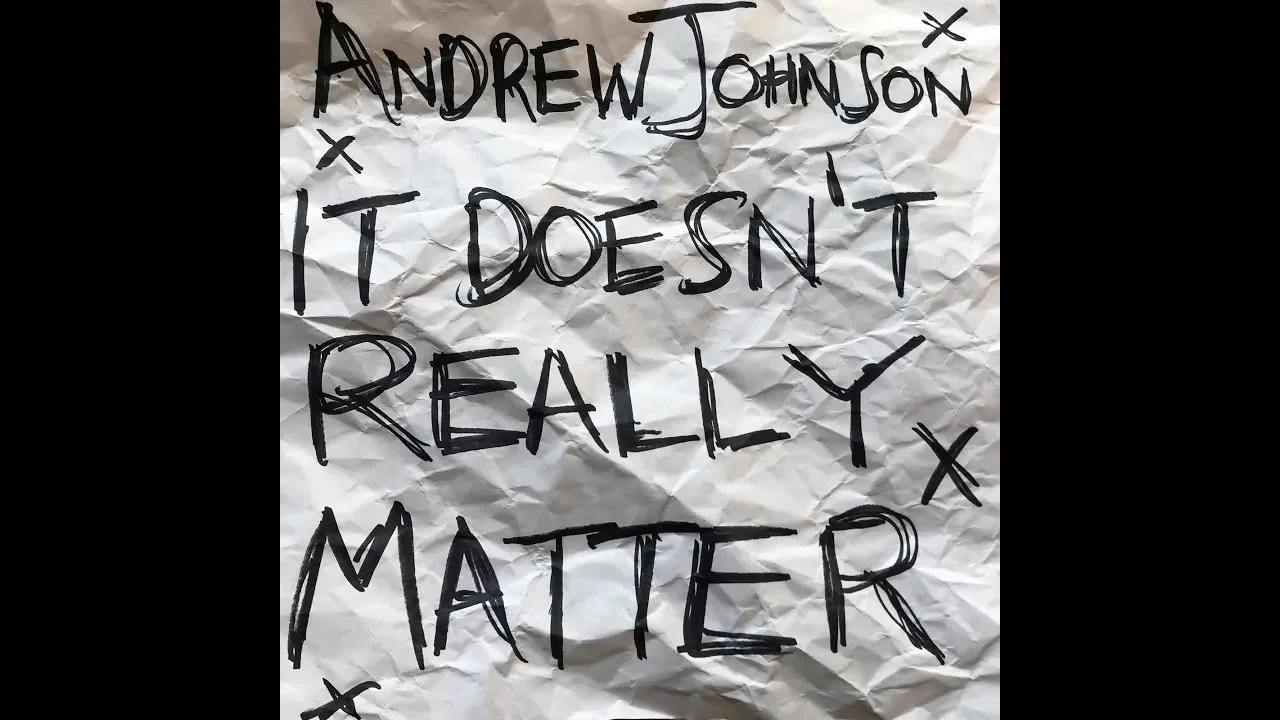 ANDREW JOHNSON x
x
IT DOESN'T
REALLY
x
MATTER
x